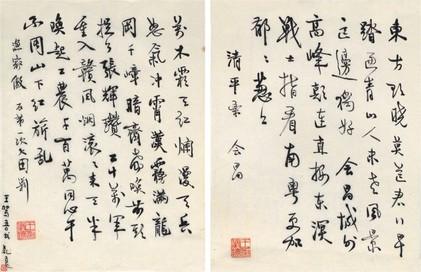 東方欲曉莫道君行早
踏遍青山人未老風景
這邊獨好 會昌城外
高峰顛連直接東溟
戰士指看南粵更加
郁〻葱〻
清平樂 會昌
萬木霜天紅爛漫天兵
怒氣冲霄漢霧滿龍
岡千嶂暗齊聲唤前頭
捉了張輝瓚 二十萬軍
重入贛風烟滚〻來天半
唤起工農千百萬同心干
不周山下紅旗亂
漁家傲 反第一次大圍剿